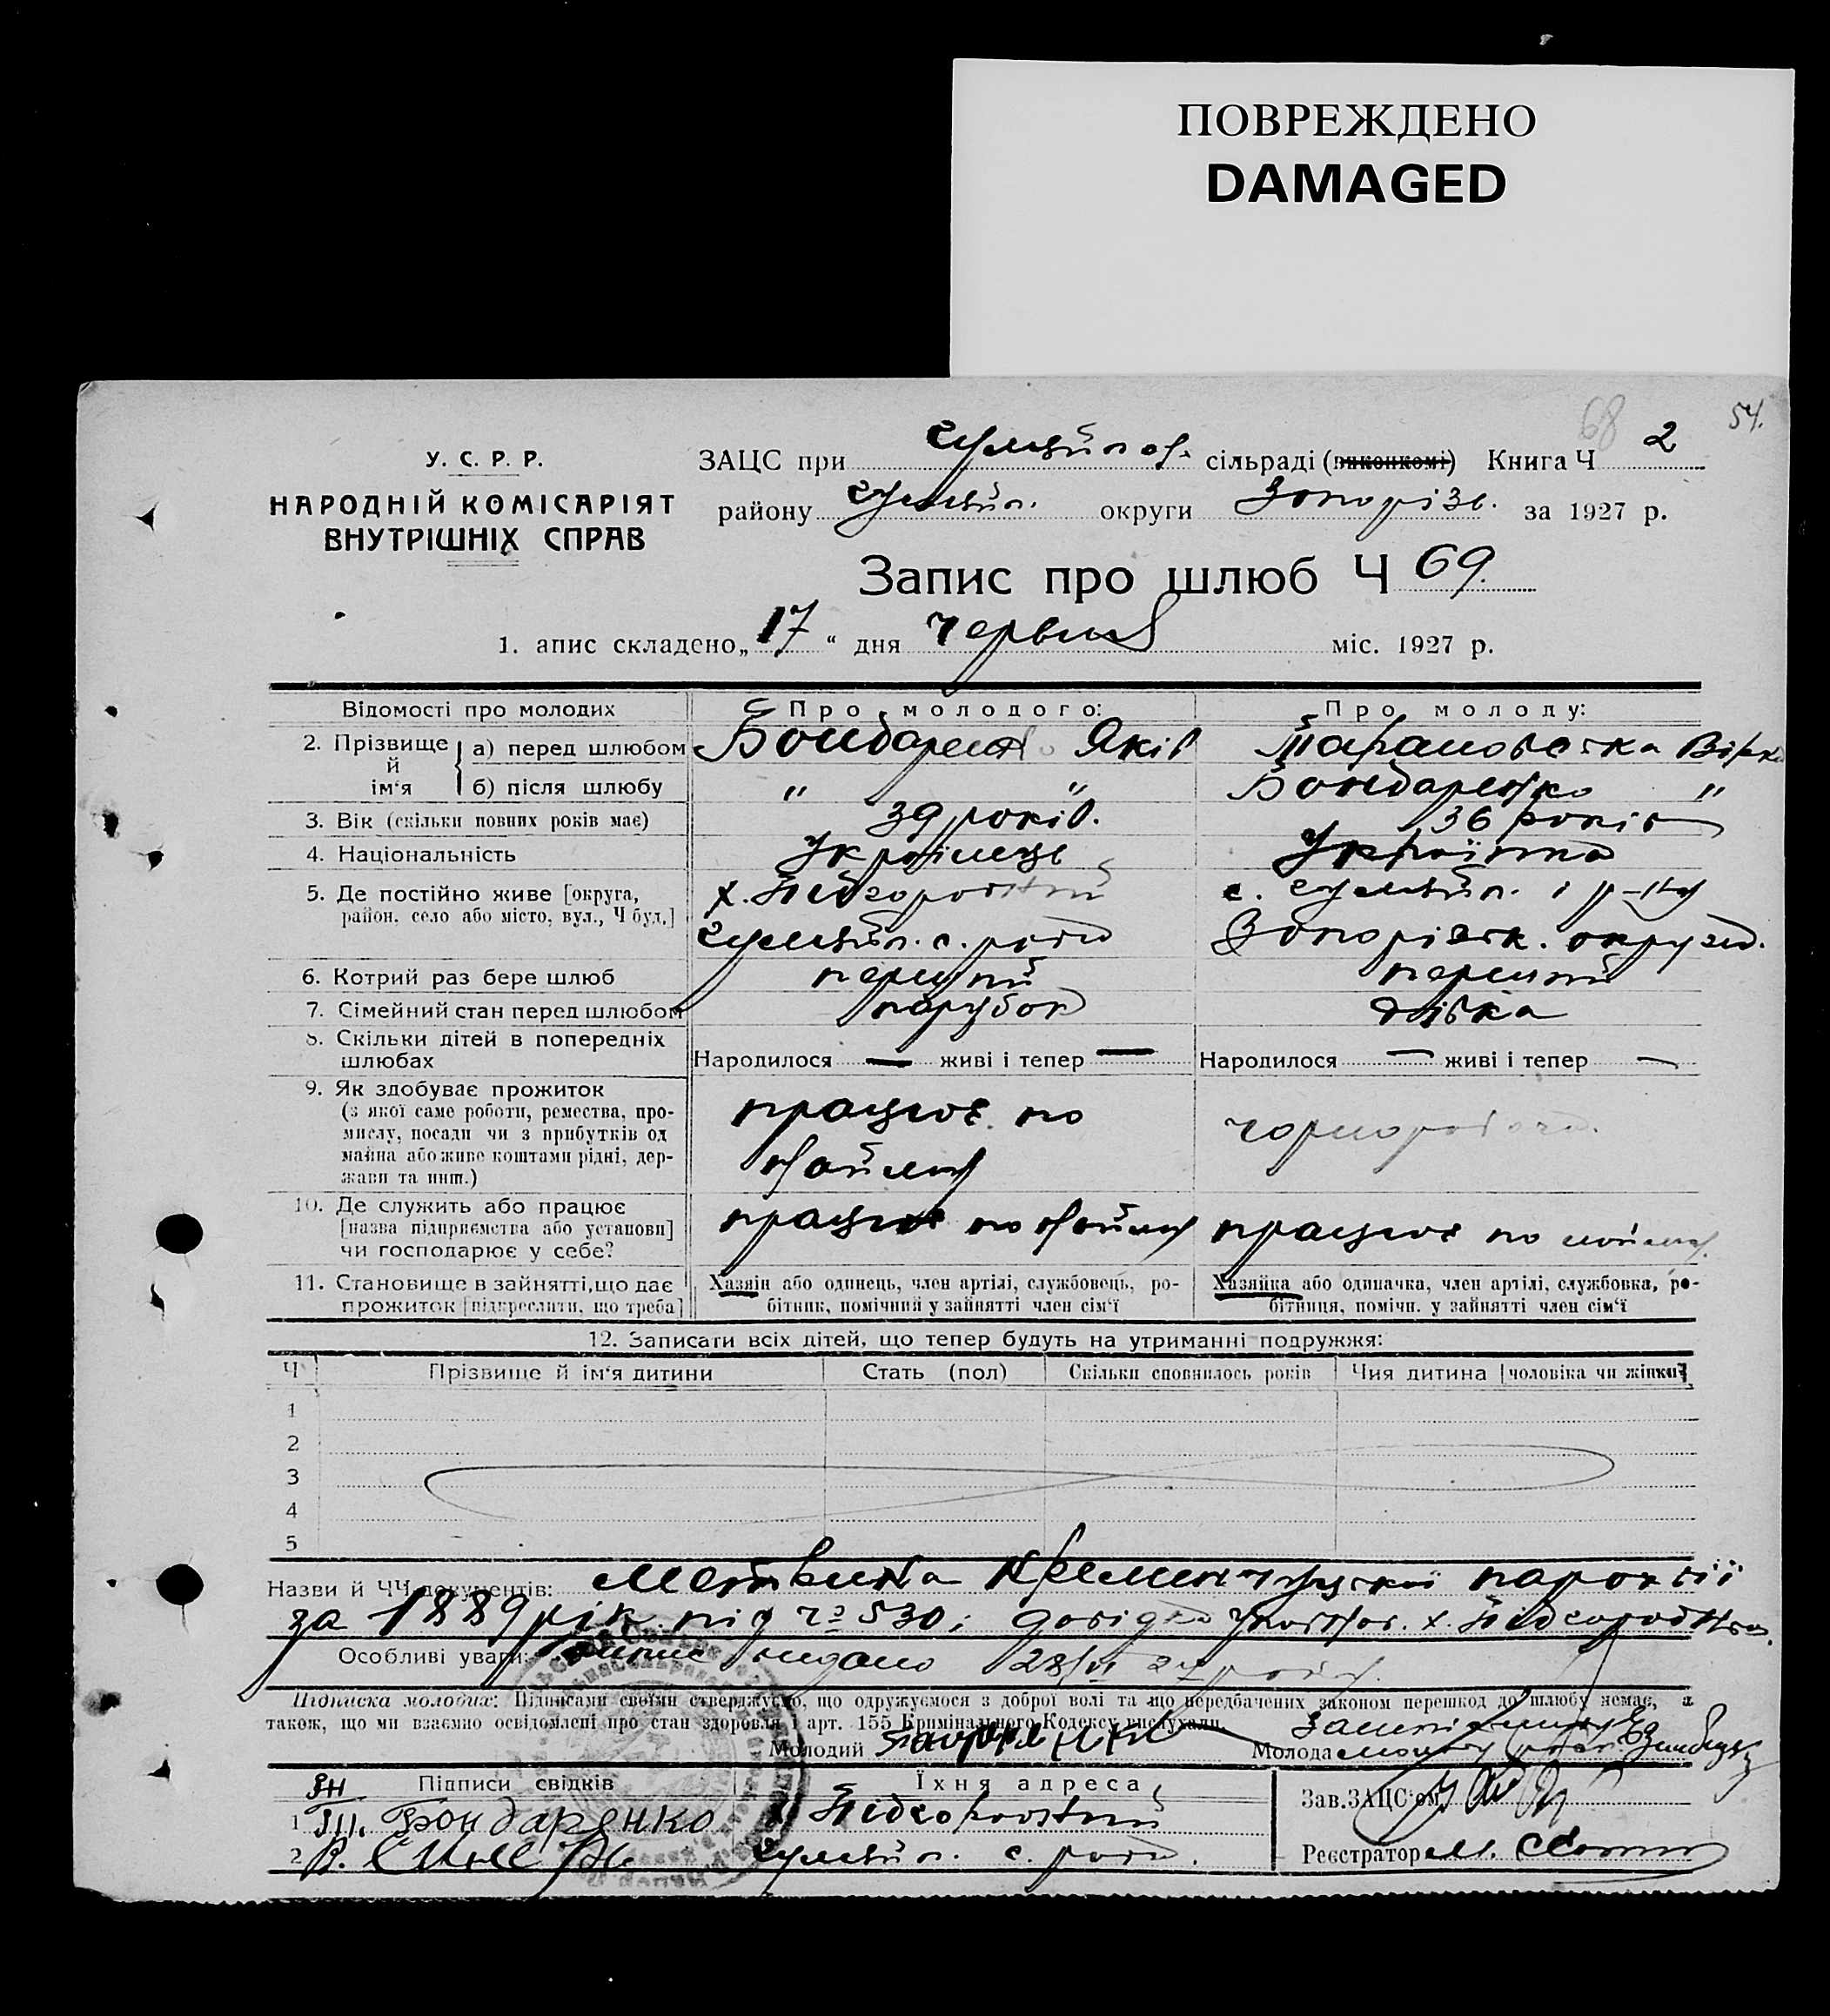 ПОВРЕЖДЕНО
DAMAGED
68 2 54.
У. С. Р. Р.
НАРОДНІЙ КОМІСАРІЯТ
ВНУТРІШНІХ СПРАВ
ЗАЦС при сільраді (виконкомі) Книга Ч 2
району округи Запорізь. за 1927 р.
Запис про шлюб Ч 69.
1. апис складено „17“ дня червня міс. 1927 р.
Відомості про молодих Про молодого: Про молоду:
2. Прізвище й ім'я а) перед шлюбом Бондаренко Яків Тарановська Віра
б) після шлюбу " " Бондаренко "
3. Вік (скільки повних років має) 39 років. 36 років
4. Національність Українець Українка
5. Де постійно живе [округа, район, село або місто, вул., Ч буд.] х. Підгородний с.
с. ради Запорізьк. округи.
6. Котрий раз бере шлюб перший перший
7. Сімейний стан перед шлюбом парубок дівка
8. Скільки дітей в попередніх шлюбах Народилося — живі і тепер — Народилося — живі і тепер —
9. Як здобуває прожиток
(з якої саме роботи, ремества, про-
мислу, посади чи з прибутків од
майна або живе коштами рідні, дер-
жави та инш.)
працює по найму чорноробоча.
10. Де служить або працює
[назва підприємства або установи]
чи господарює у себе?
працює по найму працює по найму.
11. Становище в зайнятті, що дає
прожиток [підкреслити, що треба]
Хазяін або одинець, член артілі, службовець, ро-
бітник, помічний у зайнятті член сім'ї
Хазяйка або одиначка, член артілі, службовка, ро-
бітниця, помічн. у зайнятті член сім'ї
12. Записати всіх дітей, що тепер будуть на утриманні подружжя:
Ч Прізвище й ім'я дитини Стать (пол) Скільки сповнилось років Чия дитина [чоловіка чи жінки]
1
2
3
4
5
Назви й ЧЧ документів: Метвика Кременчуцької парохії
за 1889 рік під № 530; довідка х. Підгородн
Особливі уваги: видано 28/VI 27 року.
Підписка молодих: Підписами своїми стверджуємо, що одружуємося з доброї волі та що передбачених законом перешкод до шлюбу немає, а
також, що ми взаємно освідомлені про стан здоровля і арт. 155 Кримінального Кодексу вислухали.
Молодий Молода
Підписи свідків Їхня адреса
1 Бондаренко х. Підгородний
2 В. с. ради.
Зав. ЗАЦС'ом
Реєстратор М.